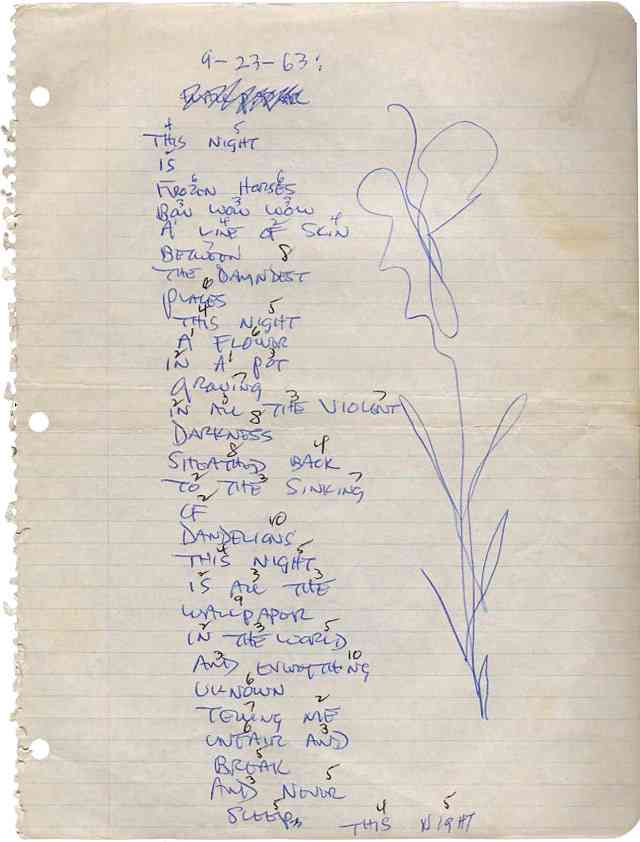 9-23-63:
4 5
THIS NIGHT
2
IS
6 6
FROZEN HORSES
3 3 3
BOW WOW WOW
1 4 2 4
A LINE OF SKIN
7
BETWEEN
8
THE DAMNDEST
6
PLACES
4 5
THIS NIGHT
1 6
A FLOWER
2 1 3
IN A POT
7
GROWING
2 3 3 7
IN ALL THE VIOLENT
8
DARKNESS
8 4
SHEATHED BACK
2 3 7
TO THE SINKING
2
OF
10
DANDELIONS
4 5
THIS NIGHT
2 3 3
IS ALL THE
9
WALLPAPER
2 3 5
IN THE WORLD
3 10
AND EVERYTHING
6
UKNOWN
7 2
TELLING ME
6 3
UNFAIR AND
5
BREAK
3 5
AND NEVER
5 4 5
SLEEP, THIS NIGHT